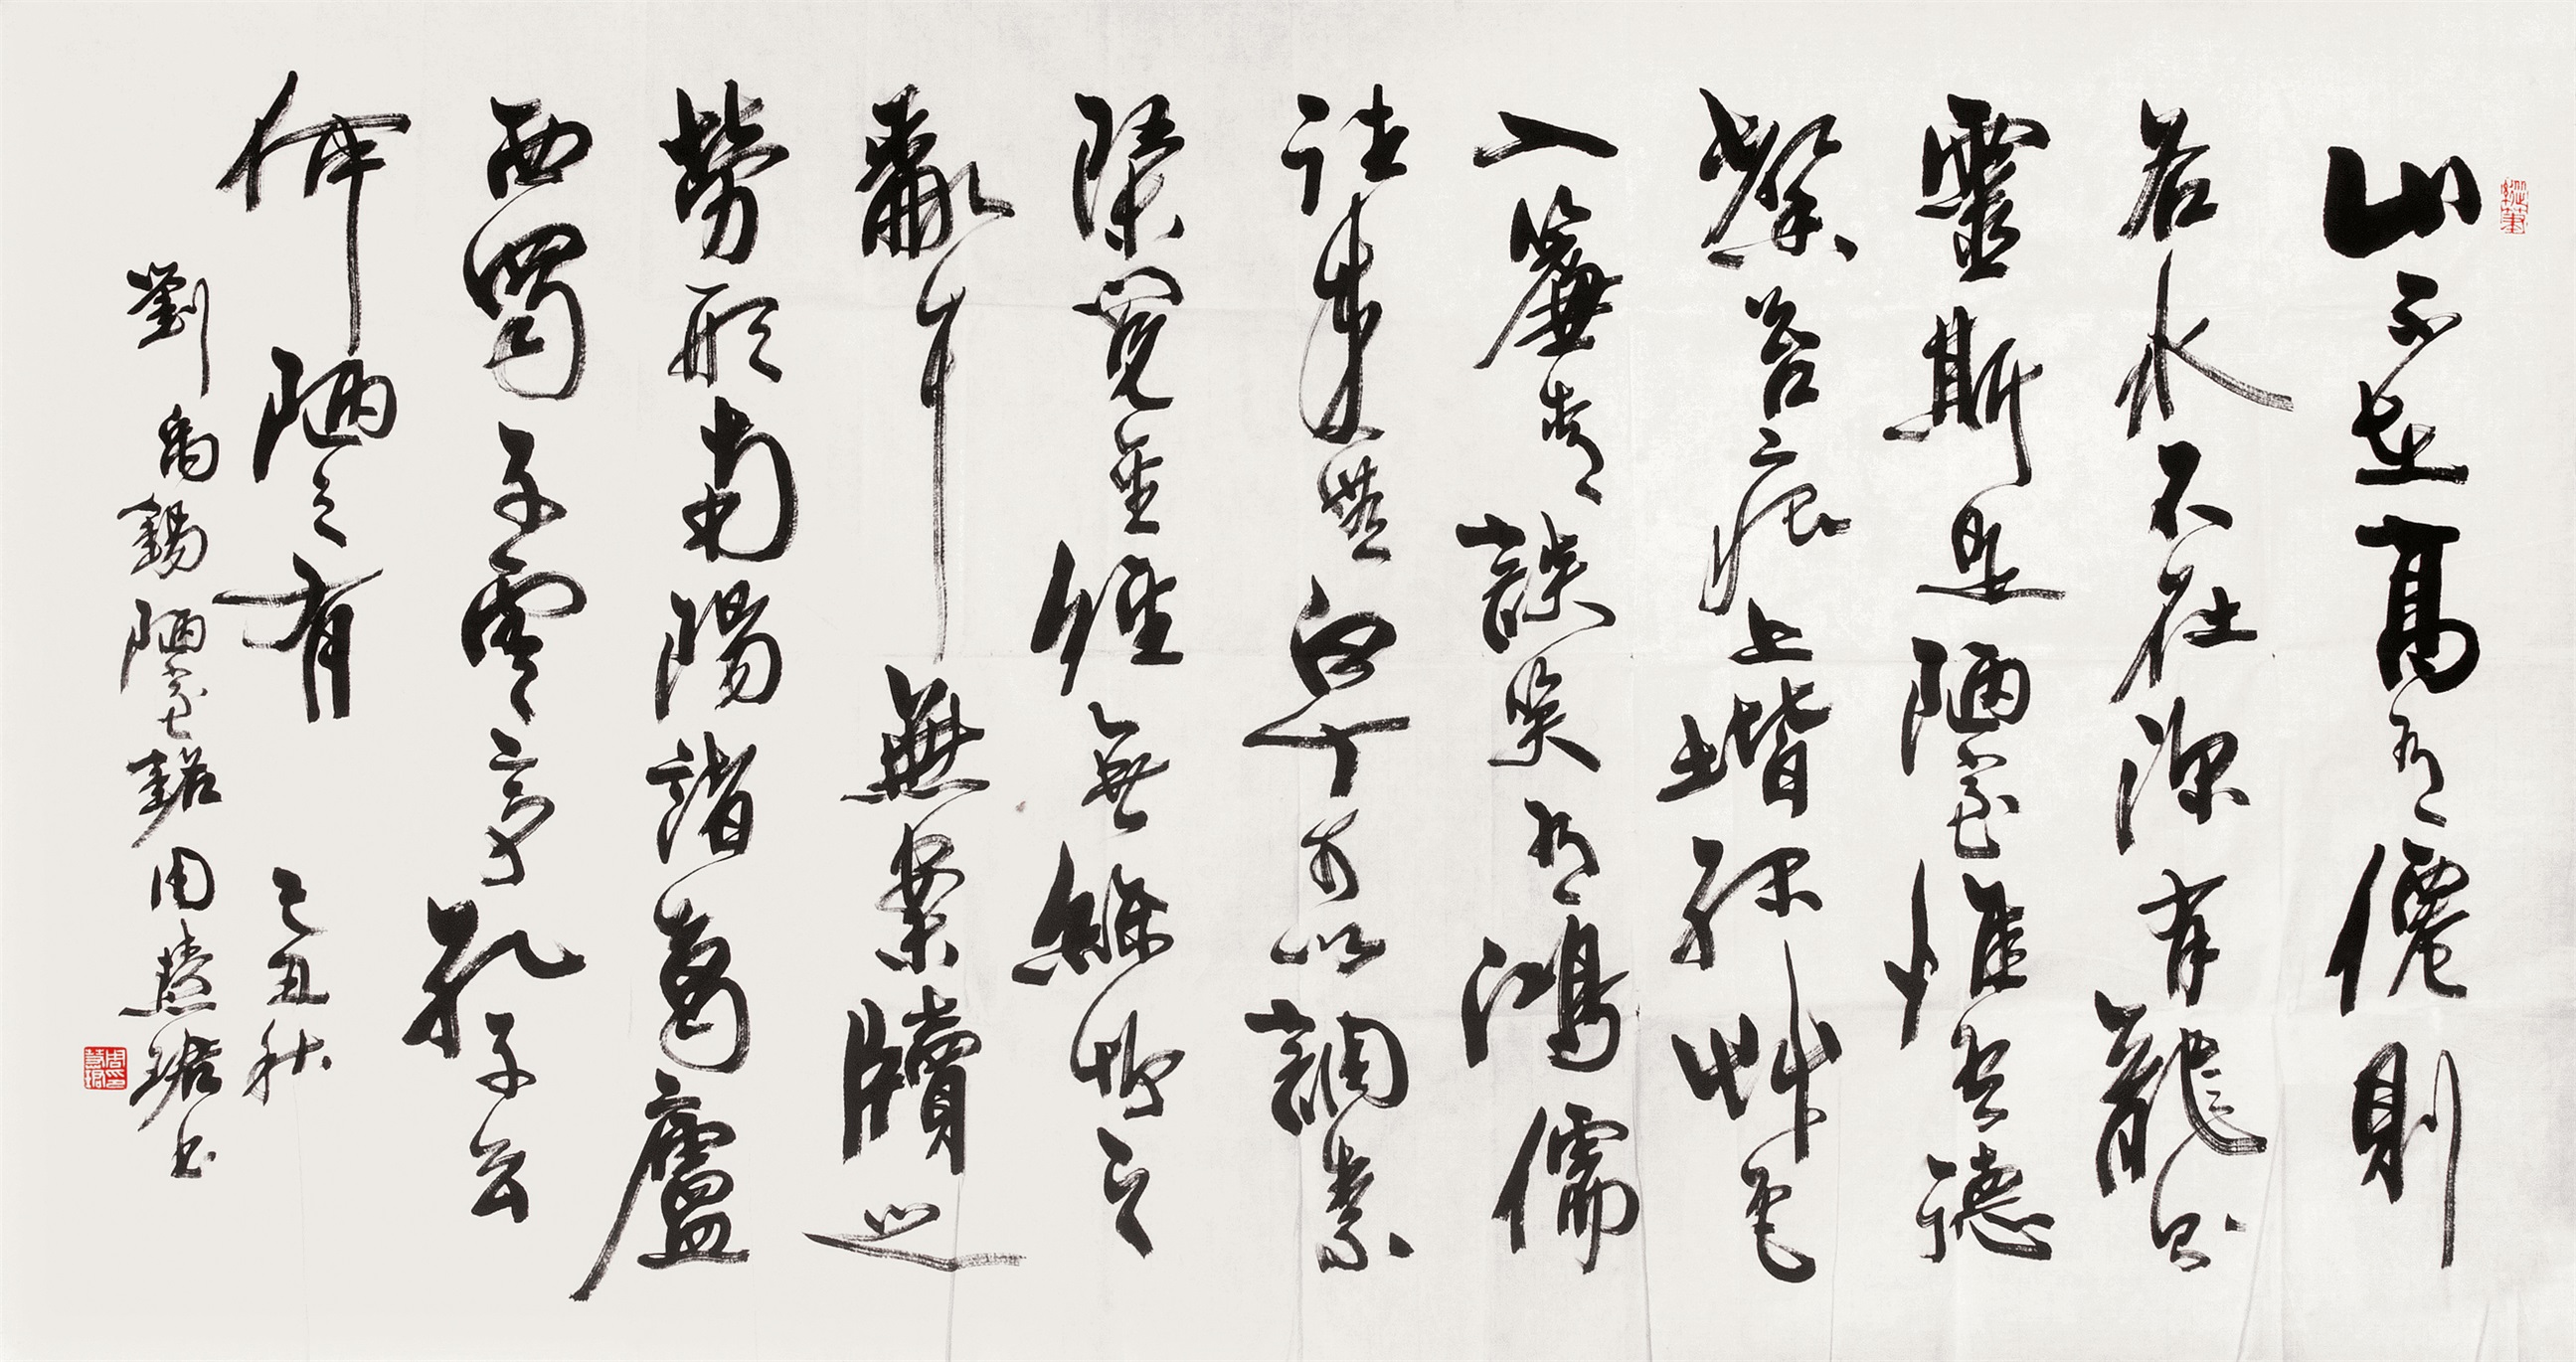 山不在高有僊則
名水不在深有龍則
靈斯是陋室惟吾德
馨苔痕上堦綠艸色
入簾青談笑有鴻儒
往來無白丁可以調素
琴閱金經無絲竹之
亂耳無案牘之
勞形南陽諸葛廬
西蜀子雲亭孔子云
何陋之有 己丑秋
劉禹錫陋室銘周慧珺書